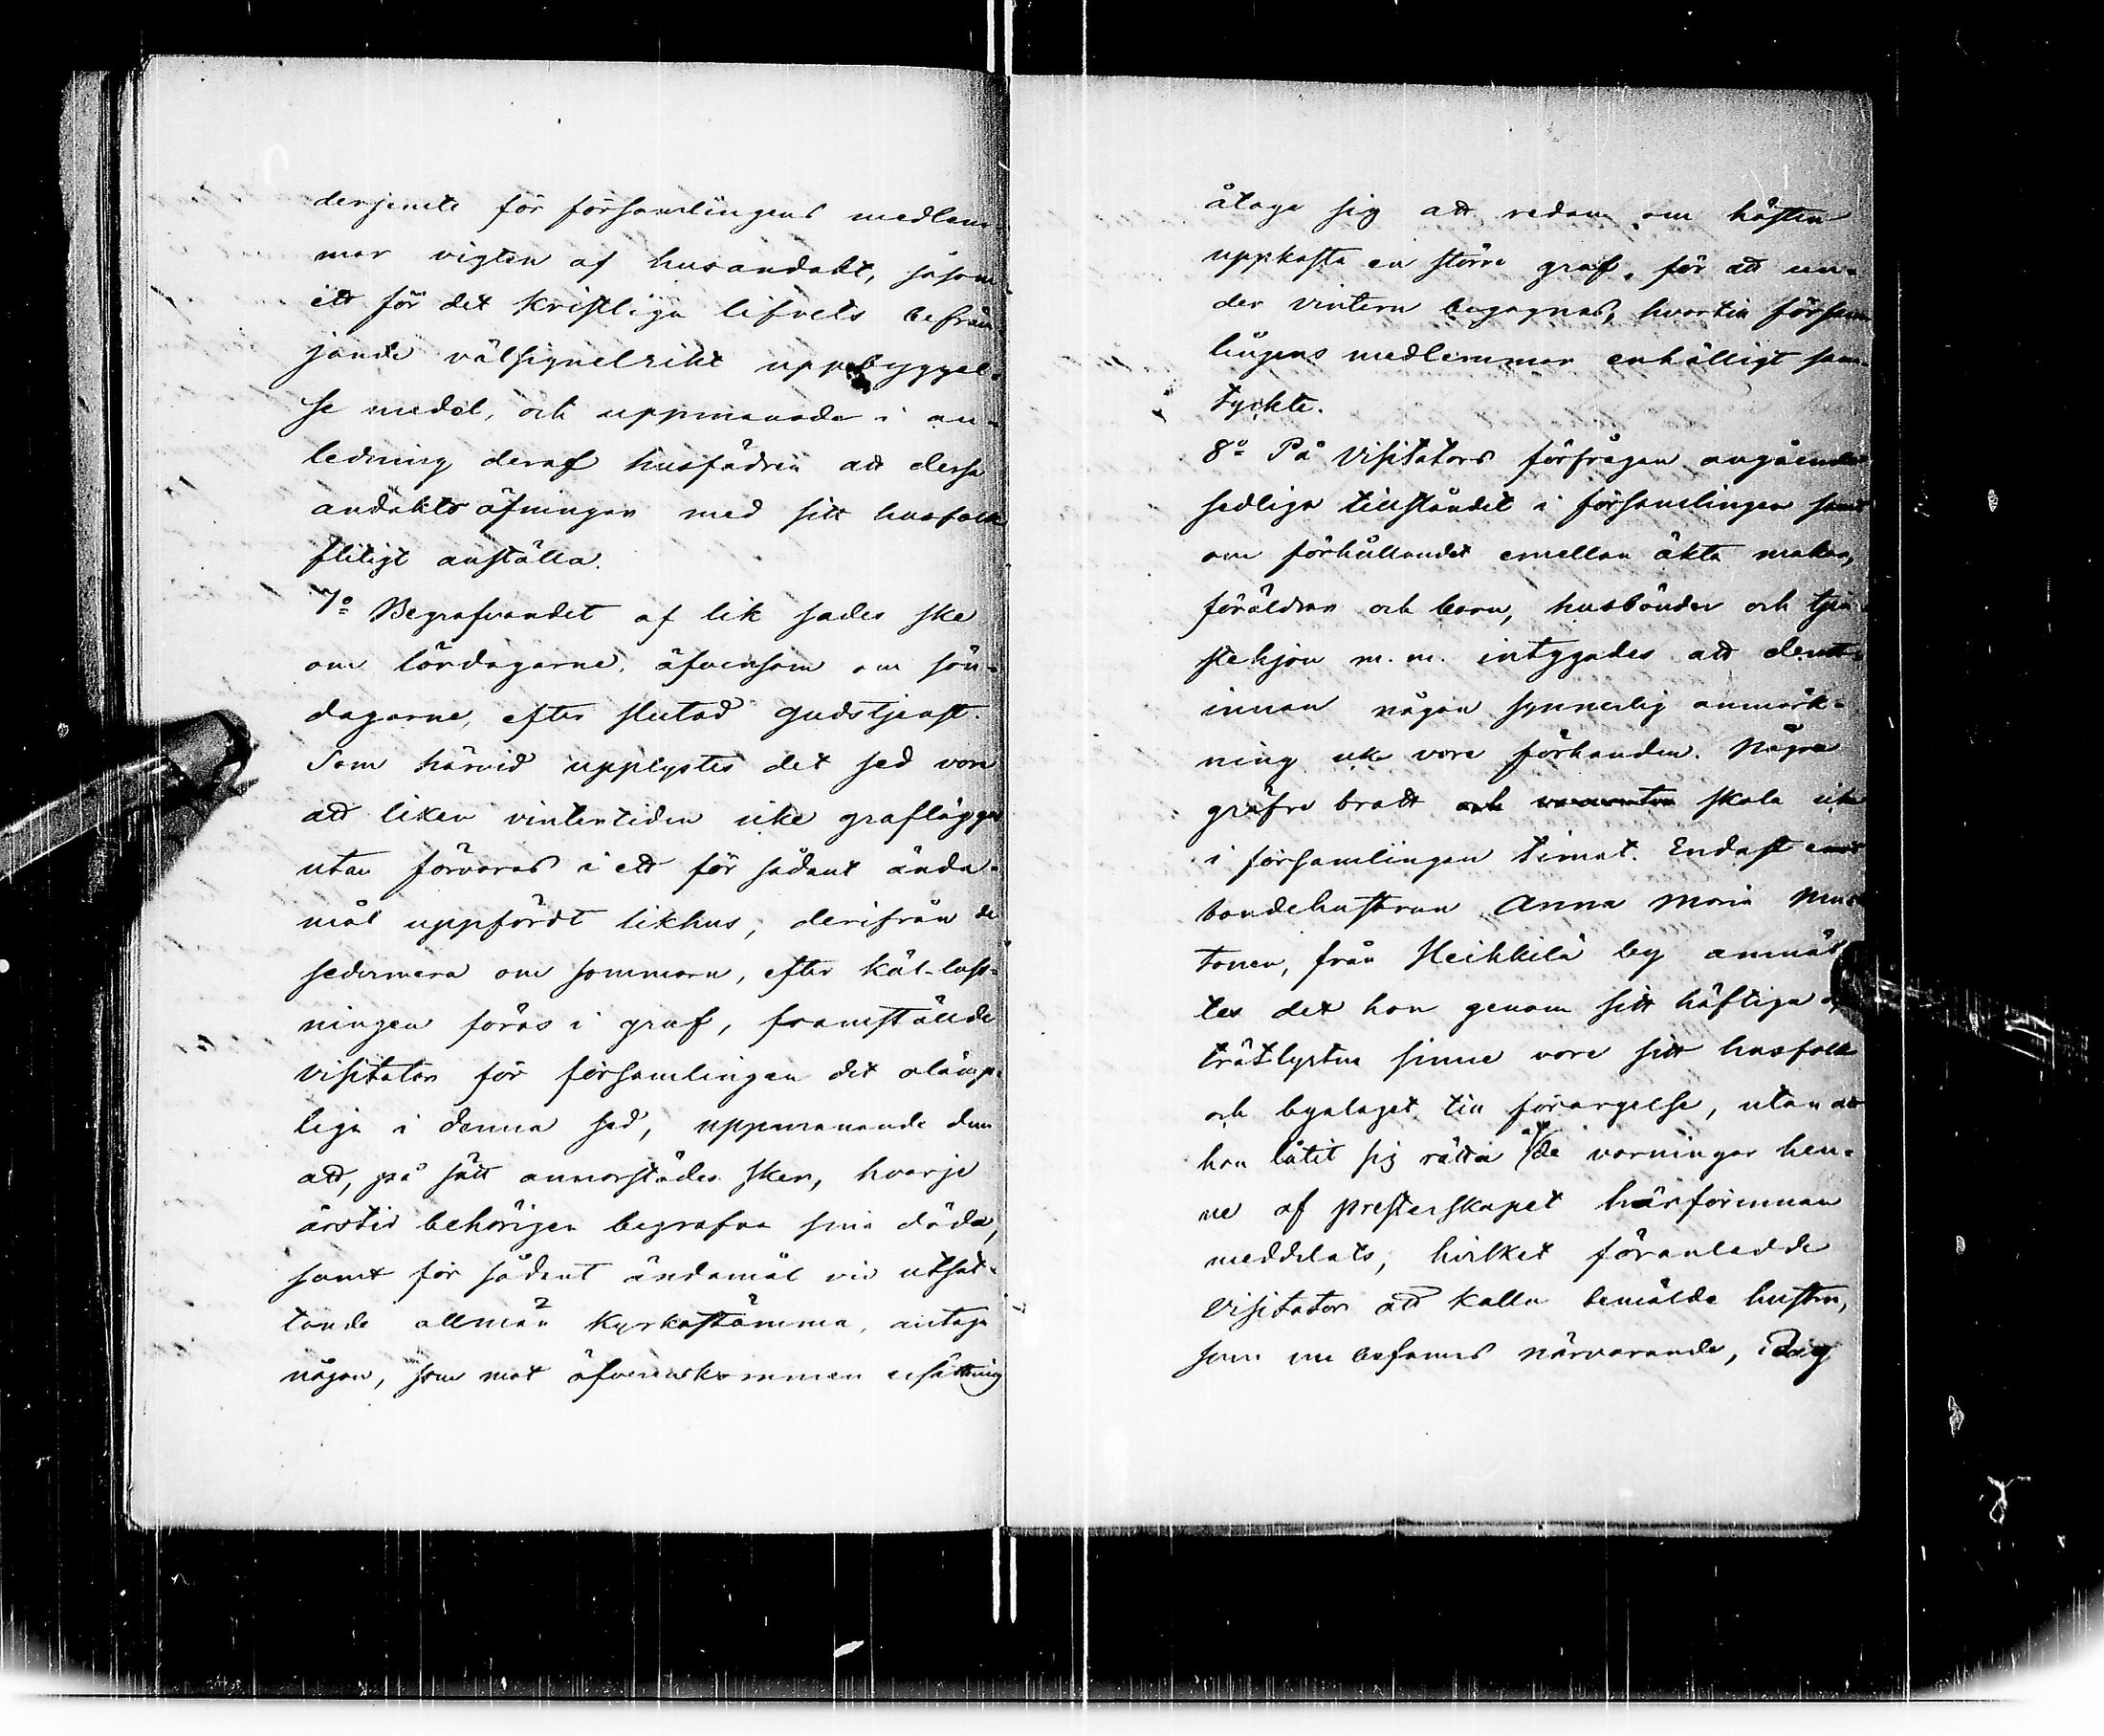 derjemte för församlingens medlem-
mar vigten af husandakt, såsom
ett för det kristliga lifvets befräm-
jande välsignelrikt uppbyggel-
se medel, och uppmanade i an-
ledning deraf husfädren att dessa
andaktsöfningar med sitt husfolk
flitigt anställa.
7:o Begrafvandet af lik sades ske
om lördagarne, äfvensom om sön-
dagarne, efter slutad gudstjenst.
Som härvid upplystes det sed vore
att liken vintertiden icke grafläggas
utan förvaras i ett för sådant ända-
mål uppfördt likhus, derifrån de
sedermera om sommarn, efter käl-loss-
ningen föras i graf, framställde
Visitator för församlingen det olämp-
liga i denna sed, uppmanande dem
att, på sätt annorstädes sker, hvarje
årstid behörigen begrafva sina döda,
samt för sådant ändamål vid utsät-
tande allmän kyrkostämma, antaga
någon, som mot öfverenskommen ersättning
åtaga sig att redan om hösten
uppkasta en större graf, för att un-
der vintern begagnas, hvartill försam-
lingens medlemmar enhälligt sam-
tyckte.
8:o På Visitators förfrågan angående
sedliga tillståndet i församlingen samt
om förhållandet emellan äkta makar,
föräldrar och barn, husbönder och tjen-
stehjon m.m. intygades att derut-
innan någon synnerlig anmärk-
ning icke vore förhanden. Några
gröfre brott och skola icke
i församlingen timat. Endast emot
bondehustrun Anna Maria
tonen, från Heikkilä by anmäl-
tes det hon genom sitt häftiga och
trätlystna sinne vore sitt husfolk
och byalaget till förargelse, utan att
hon låtit sig rätta af de varningar hen-
ne af presterskapet härförinnan
meddelats, hvilket föranledde
Visitator att kalla bemälde hustru,
som nu befanns närvarande, i dag